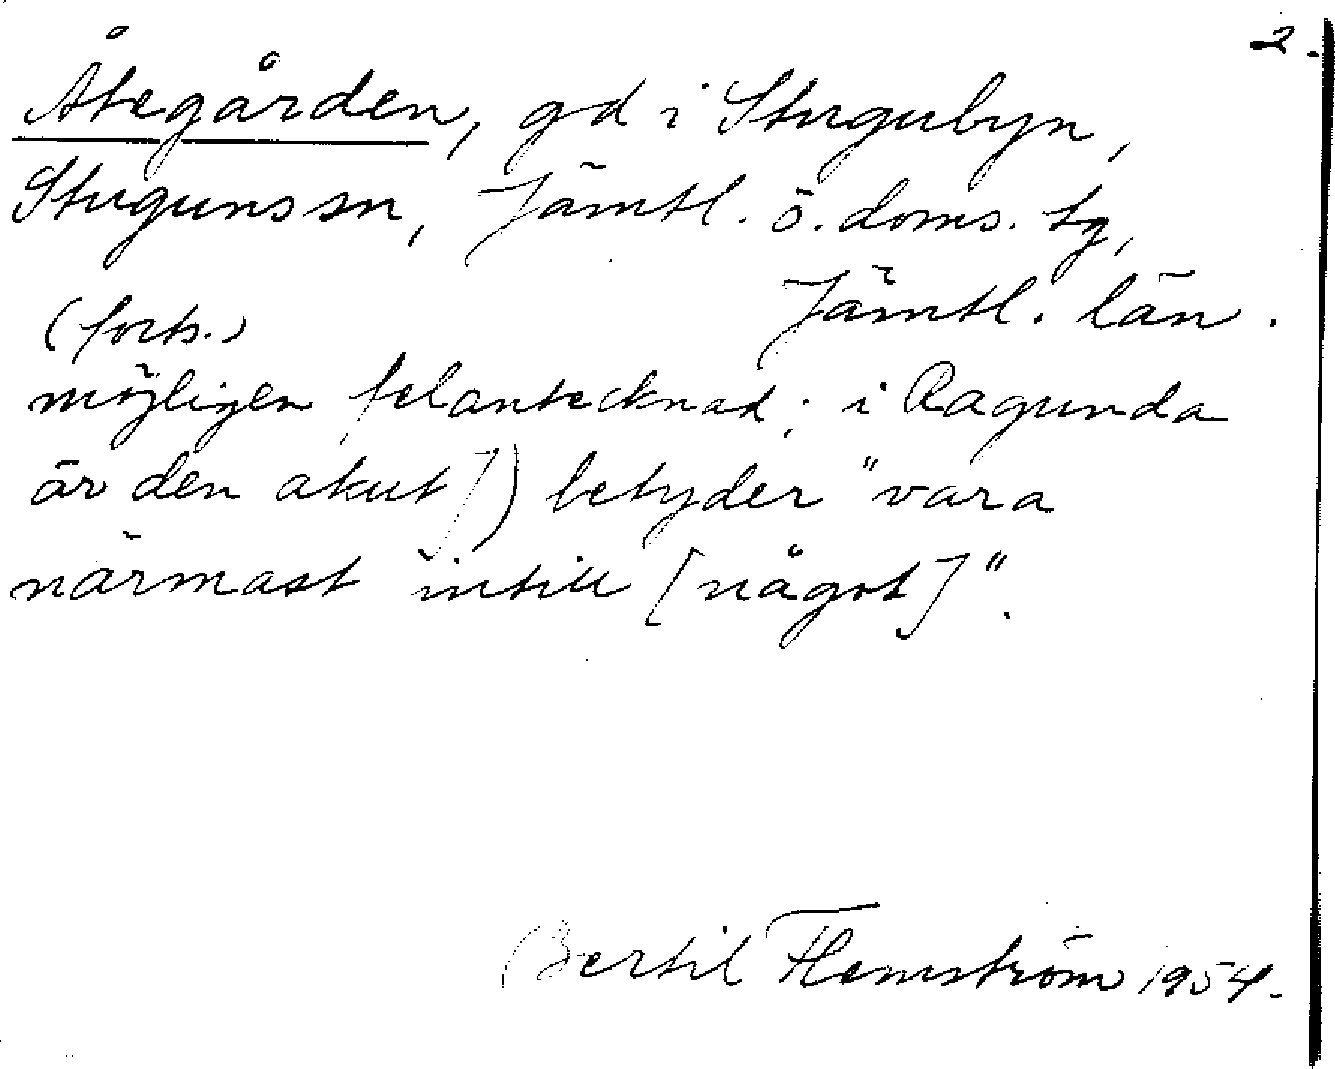 2.
Åtegården, gd i Stugubyn,
Stuguns sn, Jämtl. ö. doms. tg,
Jämtl. län.
(forts.)
möjligen felantecknad; i Ragunda
är den akut]) betyder "vara
närmast intill [något]".
Bertil Flemström 1954.